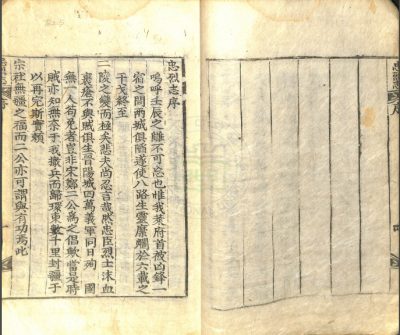 忠烈志序
嗚呼壬辰之難不可忘也惟我萊府首被凶鋒一
宿之間兩城俱陷遂使八路生靈靡爛於六載之
干戈終至
二陵之變而極矣悲夫尚忍言哉然忠臣烈士沫血
裹瘡不與賊俱生晋陽城四萬義軍同日殉國
無一人苟免者豈非宋鄭二公爲之倡歟當是時
賊亦知無奈于我撤兵而歸環東數千里封疆于
以再完斯實賴
宗社無疆之福而二公亦可謂與有功焉此
忠烈志
序